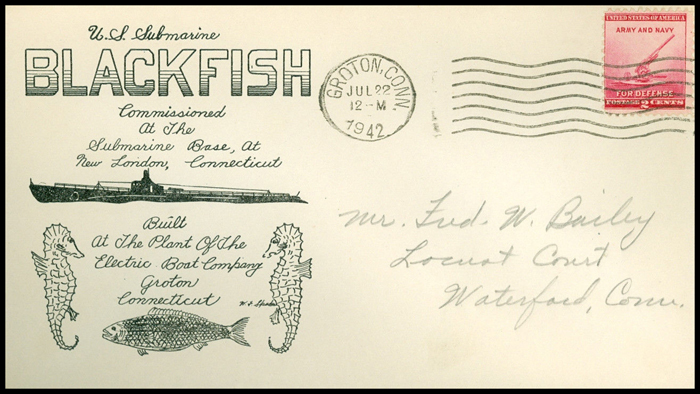 U.S. Submarine
BLACKFISH
Commissioned
At The
Submarine Base, At
New London, Connecticut
Built
At The Plant Of The
Electric Boat Company
Groton
Connecticut
GROTON, CONN.
JUL 22
12-M
1942
UNITED STATES OF AMERICA
ARMY AND NAVY
FOR DEFENSE
POSTAGE 2 CENTS
Mr. Fred. W. Bailey
Locust Court
Waterford, Conn.